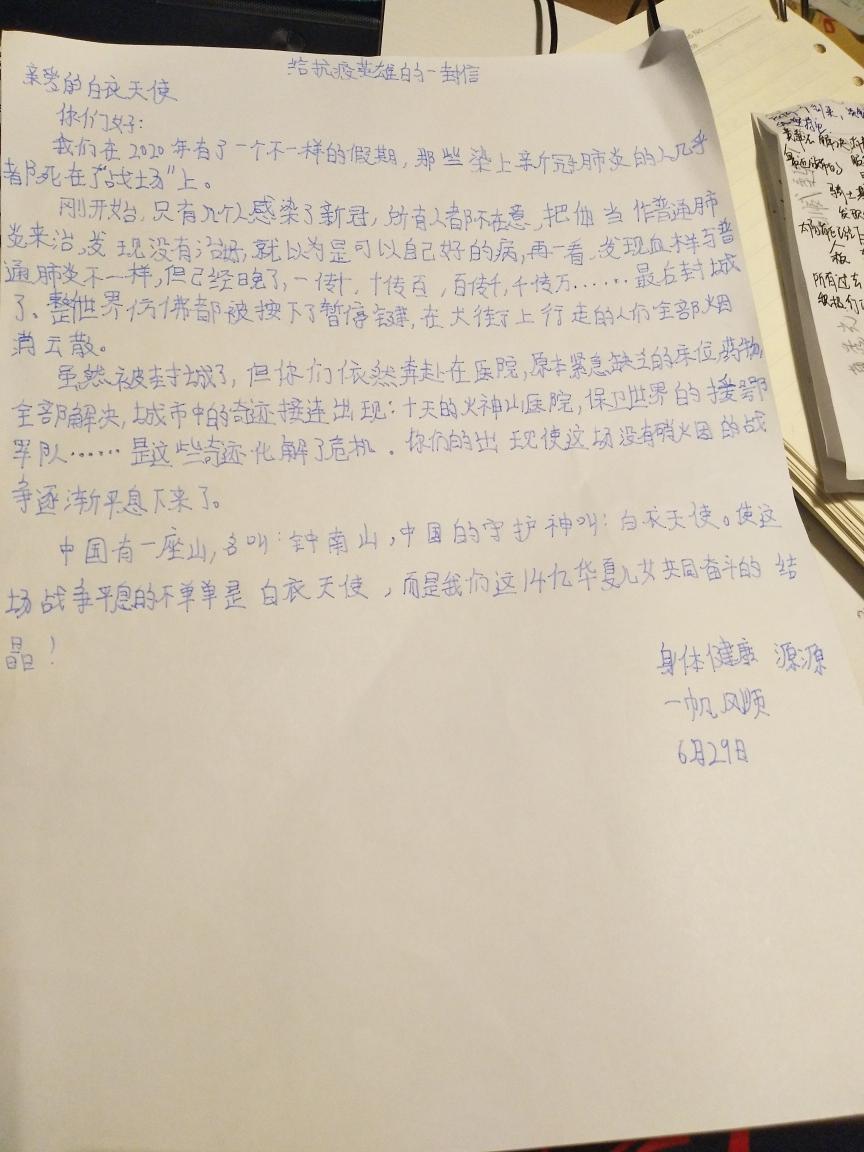 给抗疫英雄的一封信
亲爱的白衣天使
你们好:
我们在2020年有了一个不一样的假期，那些染上新冠肺炎的人几乎
都死在了“战场”上。
刚开始，只有几个人感染了新冠，所有人都不在意，把他当作普通肺
炎来治，发现没有治好，就以为是可以自己好的病，再一看，发现血样与普
通肺炎不一样，但已经晚了，一传十，十传百，百传千，千传万……最后封城
了、整世界仿佛都被按下了暂停键，在大街上行走的人们全部烟
消云散。
虽然被封城了，但你们依然奔赴在医院，原本紧急缺乏的床位，药物，
全部解决，城市中的奇迹接连出现：十天的火神山医院，保卫世界的援鄂
军队……是这些奇迹化解了危机．你们的出现使这场没有硝火因的战
争逐渐平息下来了。
中国有一座山，名叫：钟南山，中国的守护神叫：白衣天使。使这
场战争平息的不单单是白衣天使，而是我们这14亿华夏儿女共同奋斗的结
晶！
身体健康 源源
一帆风顺
6月29日
所有过去